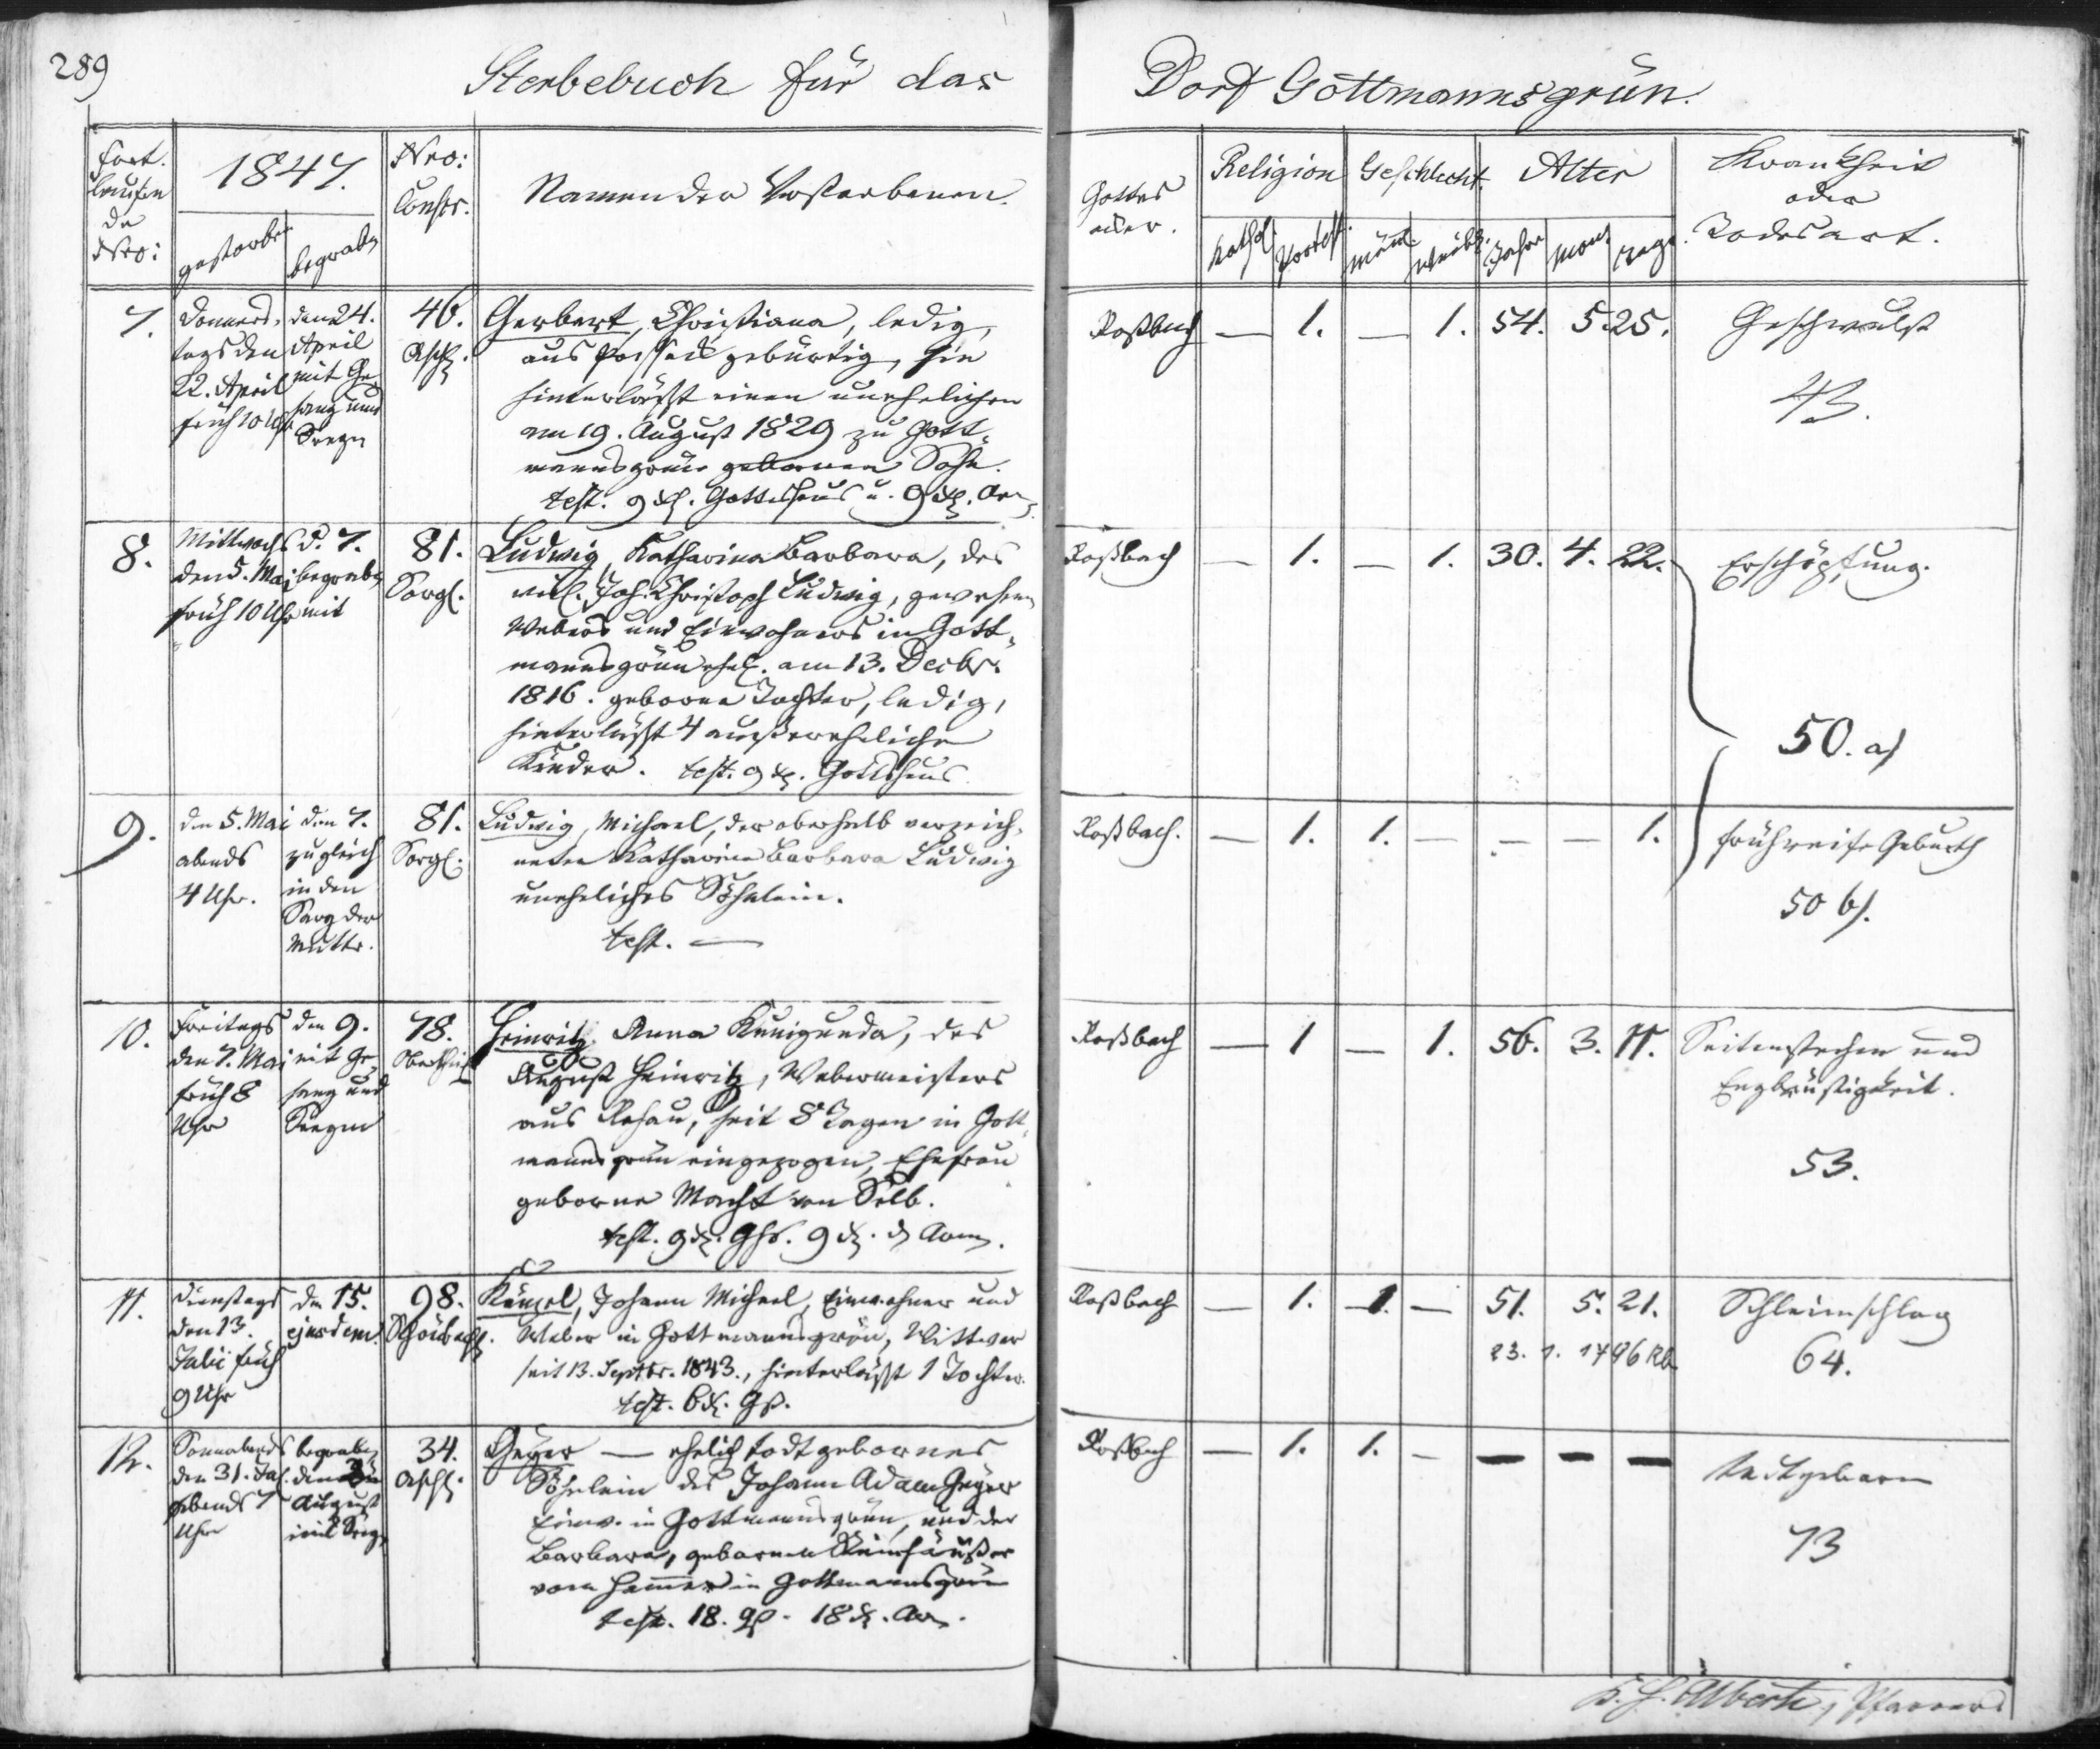 289
Sterbebuch für das Dorf Gottmannsgrün.
Fort-
laufen
de
Nro:
1847.
gestorben
begraben
Nro:
Conscr.
Namen der Verstorbenen.
Gottes
acker.
Religion
Kathol.
Protest.
Geschlecht.
männl.
weibl.
Alter
Jahre
Mon.
Tage.
Krankheit
oder
Todesart.
7.
Donners-
tags den
22. April
früh 10 Uhr
den 24.
April
mit Ge-
sang und
Seegn
46.
Asch.
Gerbert, Christiana, ledig,
aus Possek gebürtig, sie
hinterlässt einen unehelichen
am 19. August 1829 zu Gott-
mannsgrün gebornen Sohn.
test. 9 x. Gotteshaus u. 9 x. Arm.
Roßbach
— 1. — 1. 54. 5 25.
Geschwulst
43.
8.
Mittwochs
den 5. Mai
früh 10 Uhr
d. 7.
begraben
mit
81.
Sorgl.
Ludwig, Katharina Barbara, des
weil. Joh. Christoph Ludwig, gewesenen
Webers und Einwohners in Gott-
mannsgrün ehel. am 13. Decbr.
1816. geborne Tochter, ledig,
hinterlässt 4 außereheliche
Kinder. test. 9 x. Gotteshaus
Roßbach
— 1. — 1. 30. 4. 22.
Erschöpfung.
50. a)
9.
den 5. Mai
abends
4 Uhr.
den 7.
zugleich
in den
Sarg der
Mutter.
81.
Sorgl.
Ludwig, Michael, der oberhalb verzeich-
neten Katharina Barbara Ludwig
uneheliches Söhnlein.
test. —
Roßbach.
— 1. 1. — — — 1.
frühreife Geburth
50 b).
10.
Freitags
den 7. Mai
früh 8
Uhr
den 9.
mit Ge-
sang und
Seegen
78.
Heinritz, Anna Kunigunda, des
August Heinritz, Webermeisters
aus Rehau, seit 8 Tagen in Gott-
mannsgrün eingezogen, Ehefrau
geborne Macht von Selb.
test. 9 x. Ghs. 9 x. d Arm.
Roßbach
— 1 — 1. 56. 3. 11.
Seitenstechen und
Engbrüstigkeit.
53.
11.
Dienstags
den 13.
Julii früh
9 Uhr
den 15.
ejusdem.
98.
Schönbach.
Künzel, Johann Michael, Einwohner und
Weber in Gottmannsgrün, Wittwer
seit 13. Septbr. 1843., hinterlässt 1 Tochter.
test. 6 x. Gh.
Roßbach
— 1. 1. — 51. 5. 21.
23. 1. 1796 Rb
Schleimschlag
64.
12.
Sonnabends
den 31. Jul.
Abends 7
Uhr
begraben
den
August
mit Seeg.
34.
Asch.
Geyer — ehelich todtgebornes
Söhnlein des Johann Adam Geyer
Einw. in Gottmannsgrün, und der
Barbara, gebornen
vom Hammer in Gottmannsgrün
test. 18. gh. 18 x. Ar.
Roßbach
— 1. 1. — — — —
todtgeboren
73
Alberti, Pfarrer